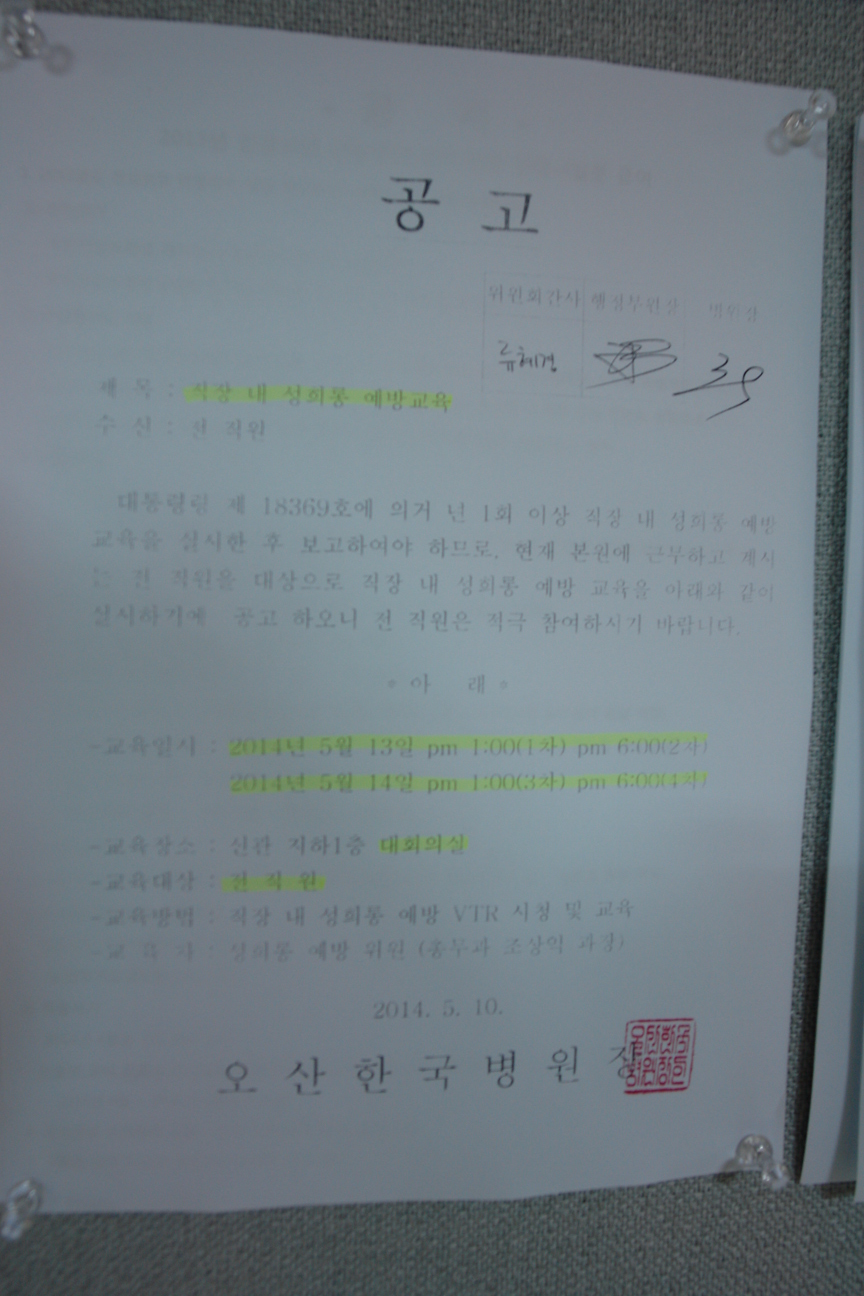 공 고
위원회간사 행정부원장 병원장
류혜경
제 목 : 직장 내 성희롱 예방교육
수 신 : 전 직원
대통령령 제 18369호에 의거 년 1회 이상 직장 내 성희롱 예방
교육을 실시한 후 보고하여야 하므로, 현재 본원에 근무하고 계시
는 전 직원을 대상으로 직장 내 성희롱 예방 교육을 아래와 같이
실시하기에 공고 하오니 전 직원은 적극 참여하시기 바랍니다.
* 아 래 *
-교육일시 : 2014년 5월 13일 pm 1:00(1차) pm 6:00(2차)
2014년 5월 14일 pm 1:00(3차) pm 6:00(4차)
-교육장소 : 신관 지하1층 대회의실
-교육대상 : 전 직 원
-교육방법 : 직장 내 성희롱 예방 VTR 시청 및 교육
-교 육 자 : 성희롱 예방 위원 (총무과 조상익 과장)
2014. 5. 10.
오 산 한 국 병 원 장